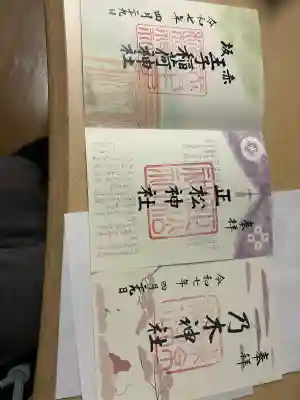 赤坂
王子稲荷神社
令和七年 四月二十九日
奉拝
正松神社
奉拝
乃木神社
令和七年 四月二十九日